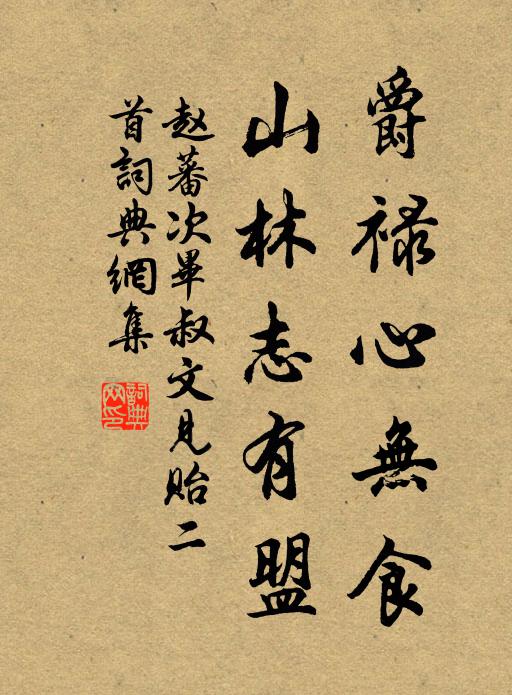 爵祿心無食
山林志有盟
赵蕃次畢叔文見貽二
首詞典網集
詞典網印